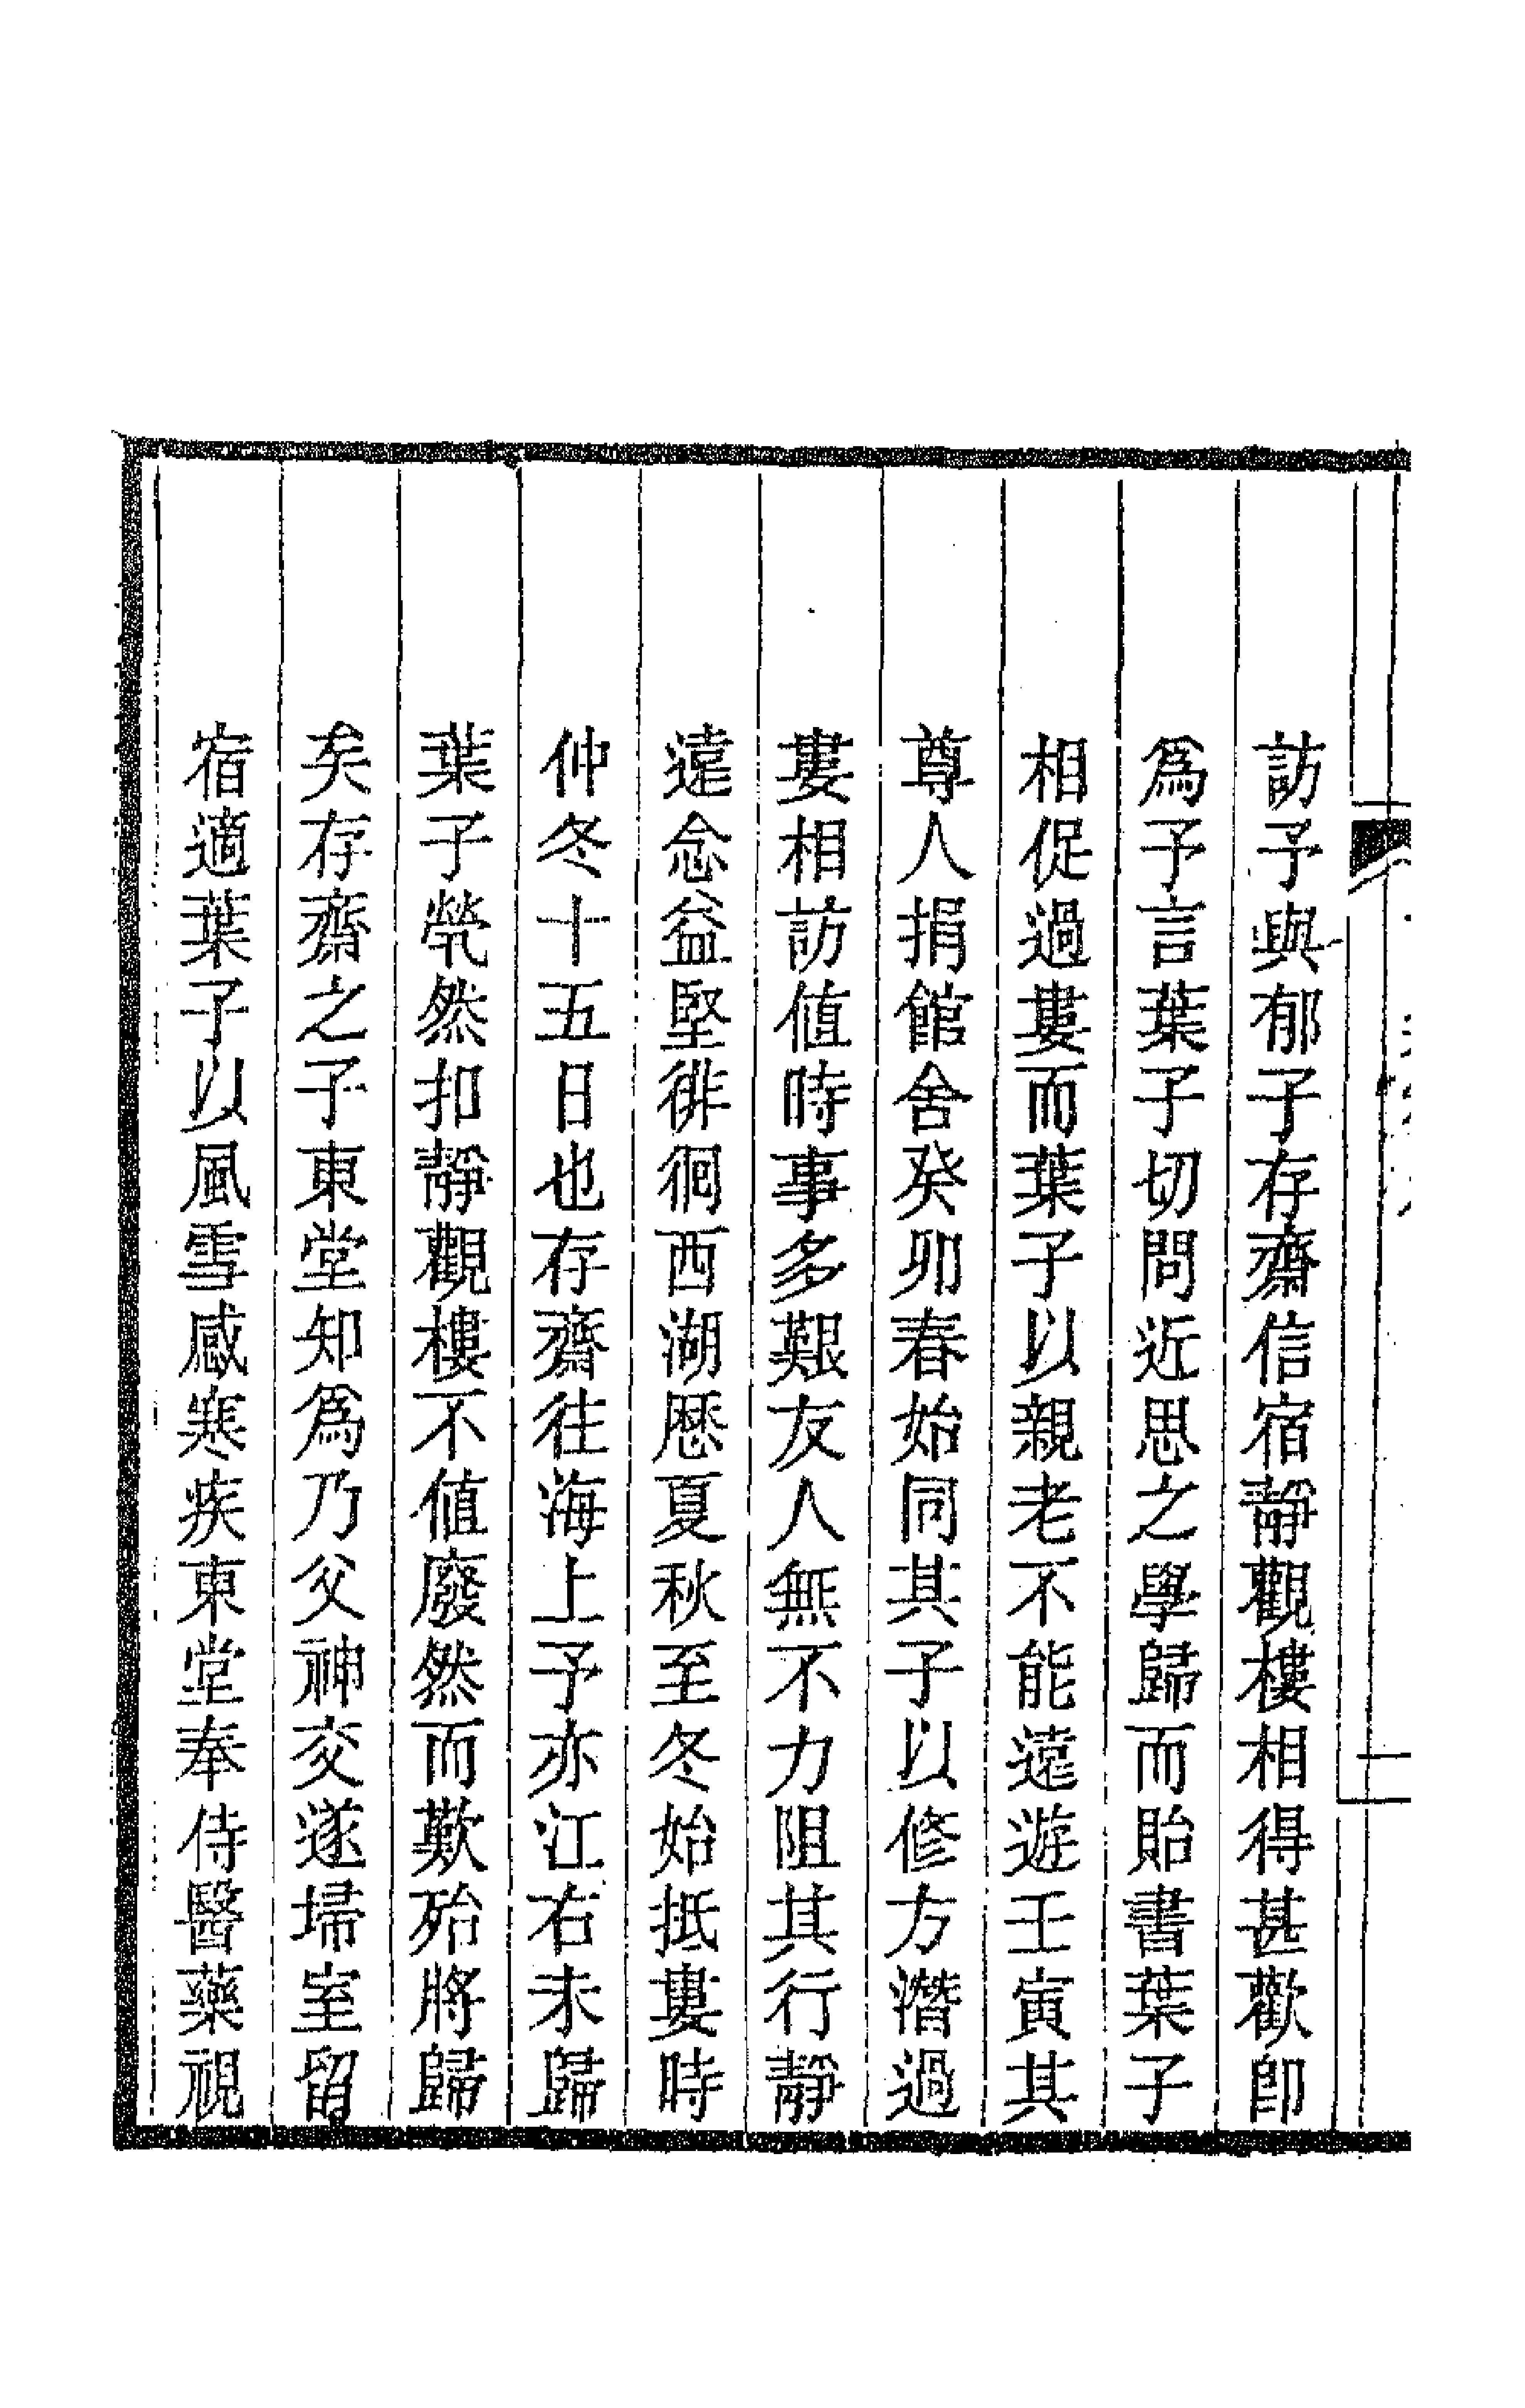 訪予與郁子存齋信宿靜觀樓相得甚歡卽
爲予言葉子切問近思之學歸而貽書葉子
相促過婁而葉子以親老不能遠遊壬寅其
尊人捐館舍癸卯春始同其子以修方潛過
婁相訪値時事多艱友人無不力阻其行靜
遠念益堅徘徊西湖歷夏秋至冬始抵婁時
仲冬十五日也存齋往海上予亦江右未歸
葉子煢然扣靜觀樓不値廢然而歎殆將歸
矣存齋之子東堂知爲乃父神交遂埽室留
宿適葉子以風雪感寒疾東堂奉侍醫藥視